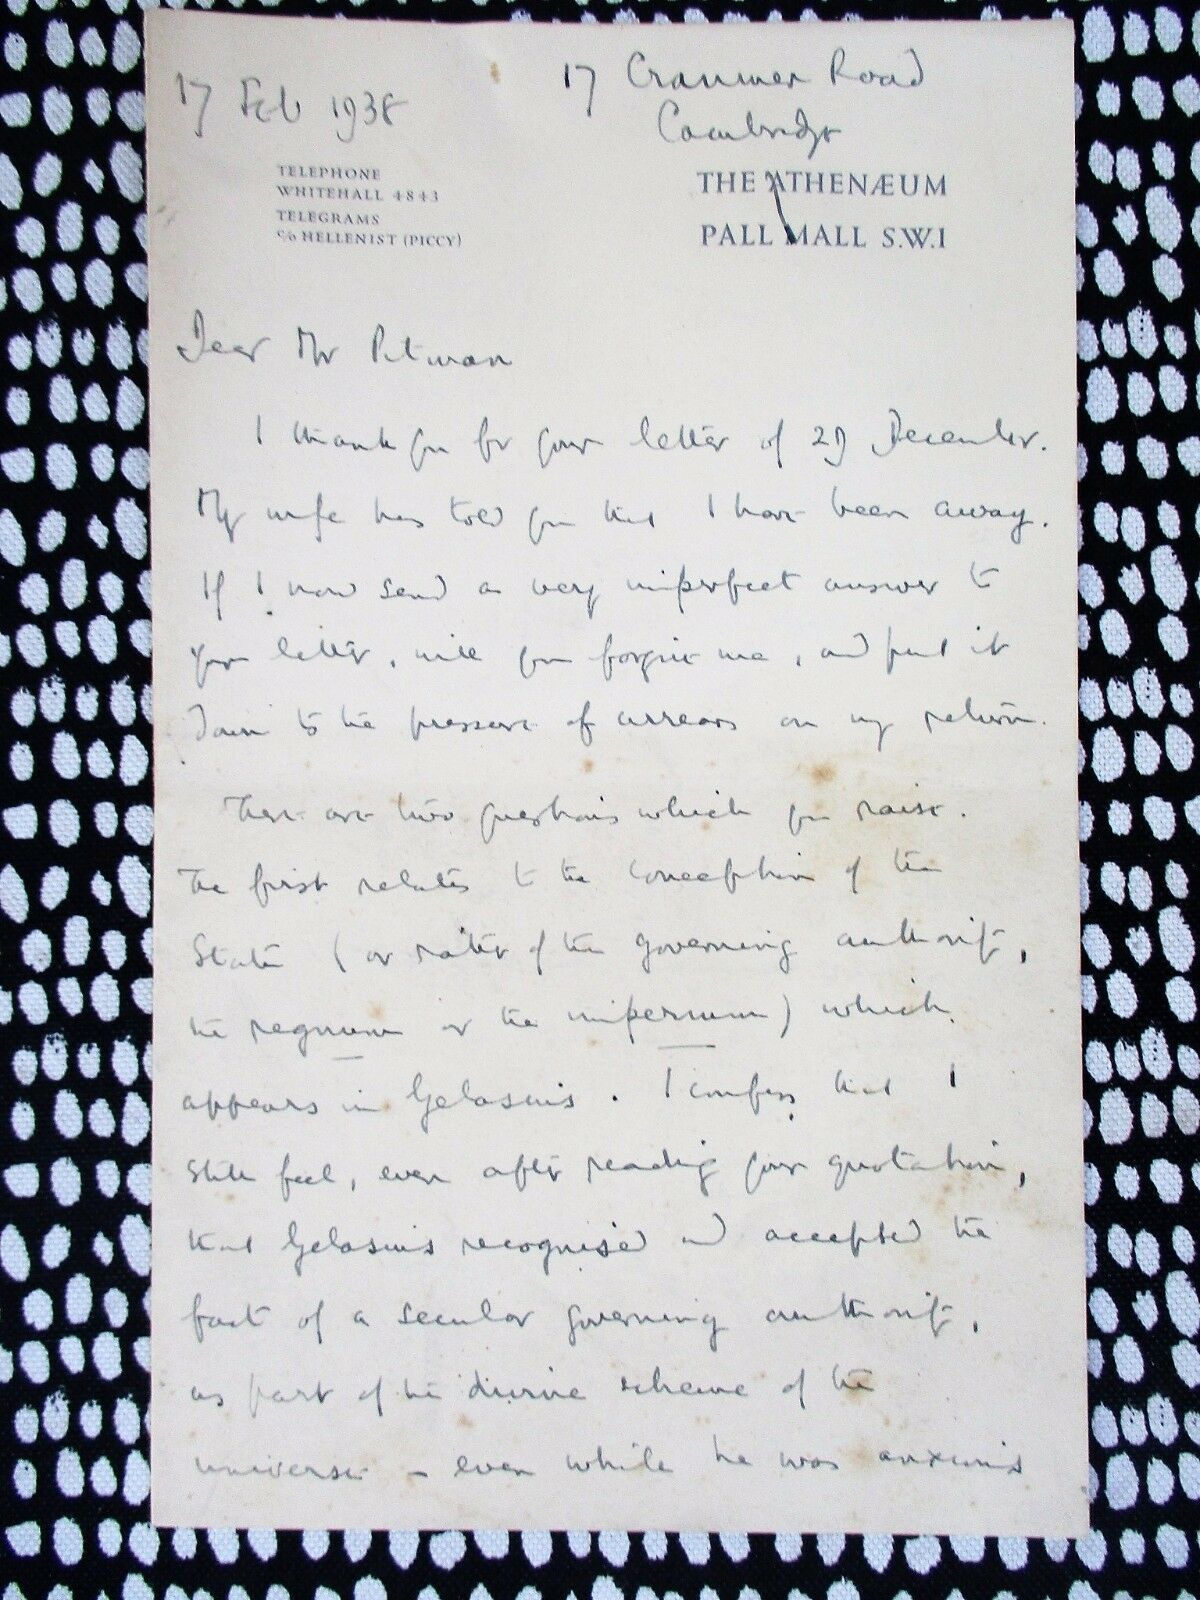 17 Feb 1938
17 Cranmer Road
Cambridge
TELEPHONE
WHITEHALL 4843
TELEGRAMS
C/O HELLENIST (PICCY)
THE ATHENÆUM
PALL MALL S.W.1
Dear Mr Pitman
I thank you for your letter of 29 December.
My wife has told you that I have been away.
If I now send a very imperfect answer to
your letter, will you forgive me, and put it
down to the pressure of arrears on my return.
There are two questions which you raise.
The first relates to the conception of the
State (or rather of the governing authority,
the regnum or the imperium) which
appears in Gelasius. I confess that I
still feel, even after reading your quotation,
that Gelasius recognised and accepted the
fact of a secular governing authority,
as part of the divine scheme of the
universe – even while he was anxious